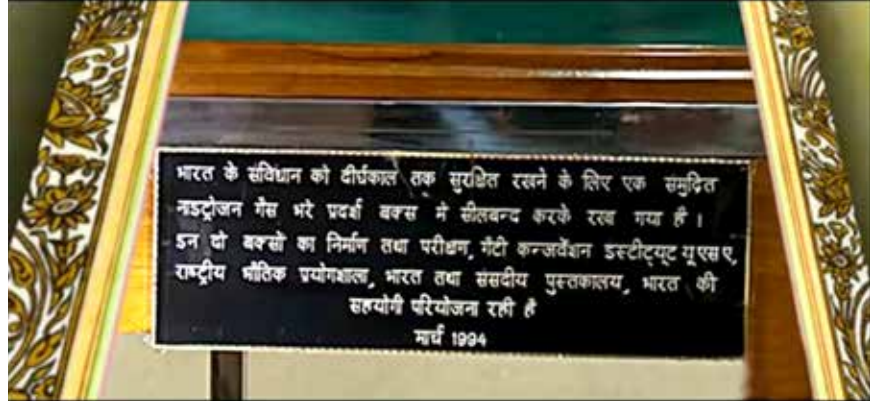 भारत के संविधान को दीर्घकाल तक सुरक्षित रखने के लिए एक समुद्रित
नाइट्रोजन गैस भरे प्रदर्श बक्स मे सीलबन्द करके रखा गया है ।
इन दो बक्सो का निर्माण तथा परीक्षण, गैटी कन्जर्वेशन इस्टीट्यूट यू एस ए,
राष्ट्रीय भौतिक प्रयोगशाला, भारत तथा संसदीय पुस्तकालय, भारत की
सहयोगी परियोजना रही है
मार्च 1994